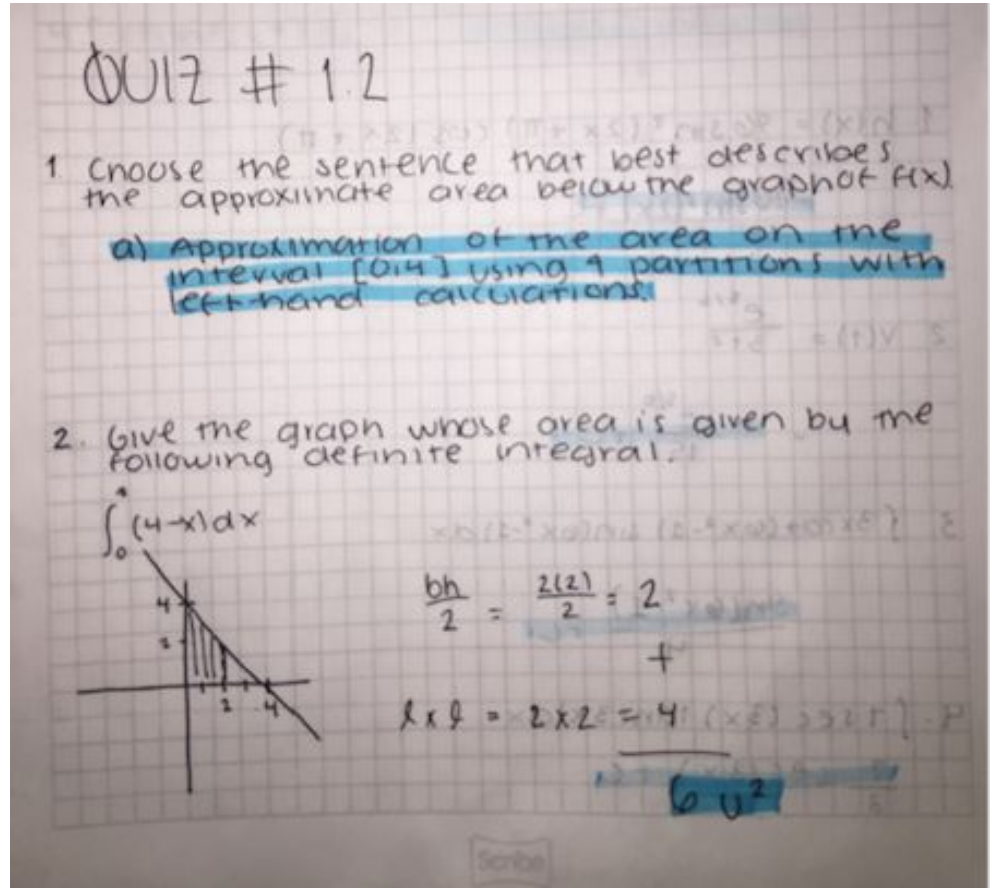 QUIZ # 1.2
1 Choose the sentence that best describes
the approximate area below the graph of f(x).
a) Approximation of the area on the
interval [0,4] using 4 partitions with
left-hand calculations.
2. Give the graph whose area is given by the
following definite integral.
∫₀ (4-x)dx
4
2
2 4
bh/2 = 2(2)/2 = 2
+
l x l = 2 x 2 = 4
6 u²
Scribe